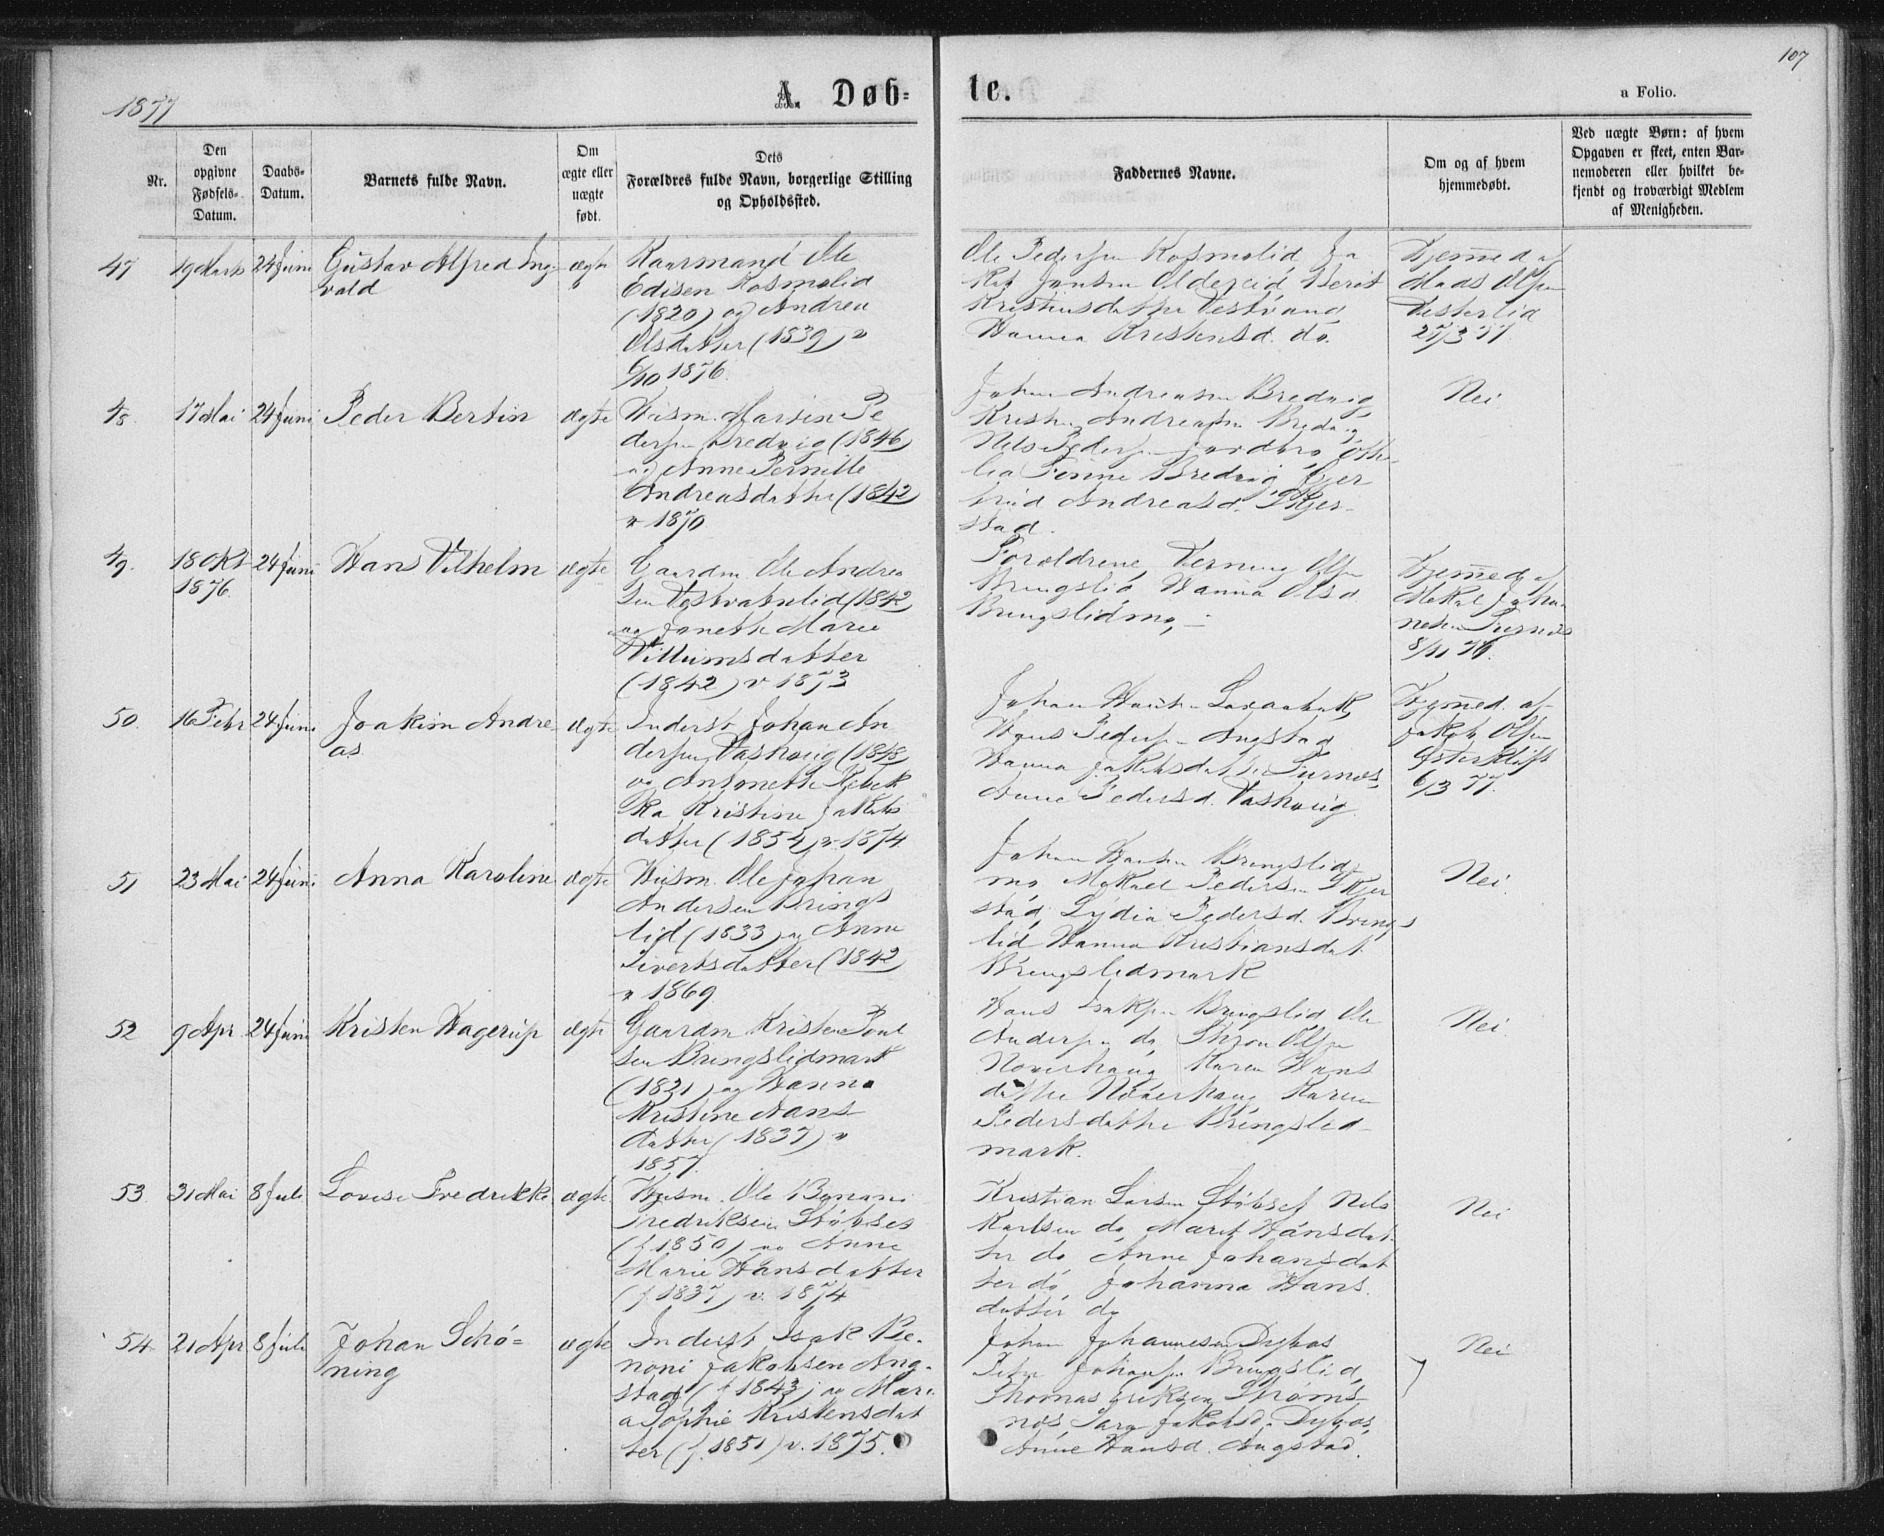 1877
A. Døb=
te.
107
a Folio.
Nr.
Den opgivne Fødsels-Datum.
Daabs-Datum.
Barnets fulde Navn.
Om ægte eller uægte født.
Dets Forældres fulde Navn, borgerlige Stilling og Opholdssted.
Faddernes Navne.
Om og af hvem hjemmedøbt.
Ved uægte Børn: af hvem Opgaven er skeet, enten Barnemoderen eller hvilket bekjendt og troværdigt Medlem af Menigheden.
47
19 Marts
24 Juni
Gustav Alfred Ing
vald
ægte
Kaarmand Ole
Edisen Kosmolid
(1820) og Andrea
Olsdatter (1839) v
6/10 1876.
Ole Pedersen Kosmolid Ja
kob Jensen Oldereid Berit
Kristensdatter Vestvand
Hanna Kristensd. do.
Hjemmed af
Mads Olsen
Vesterlid
27/3 77.
48
17 Mai
24 Juni
Peder Bertin
ægte
Husm. Martin Pe
dersen Bredvig (1846)
og Anne Pernille
Andreasdatter (1842
v 1870
Johan Andreasen Bredvig
Kristen Andreasen Bredvig
Nels Pedersen
lia Bredvig
Andreasd. Skjer
stad.
Nei
49.
18 Okt
1876.
24 Juni
Hans Vilhelm
ægte
Gaardm. Ole Andrea
sen Vestvatnlid (1842
og Jonette Marie
Villumsdatter
(1842) v 1873
Forældrene, Olsen
Bringslid Hanna Olsd
Bringslidmo,
Hjemmed af
Mekal Johan
nesen
8/11 76.
50.
16 Febr
24 Juni
Joakim Andre
as
ægte
Inderst Johan An
dersen Vashaug (1848)
og Antonette Rebek
ka Kristine Jakobs
datter (1854) v 1874
Johan
Hans Pedersen Angstad
Hanna Jakobsdatter
Anne Pedersd. Vashaug
Hjemmed. af
Jakob Olsen
Østerkløft
6/3 77.
51
23 Mai
24 Juni
Anna Karoline
ægte
Husm. Ole Johan
Andersen Brings
lid (1833) og Anne
Sivertsdatter (1842)
v 1869
Johan Hansen Bringslid
mo Mekael Pedersen Skjer
stad, Lydia Pedersd. Brings
lid Hanna Kristiansdat.
Bringslidmark
Nei.
52
9 Apr
24 Juni
Kristen Hagerup
ægte
Gaardm Kristen Poul
sen Bringslidmark
(1821) og Hanna
Kristine Hans
datter (1837) v
1857.
Hans Isaksen Bringslid Ole
Andersen do Olsen
Noverhaug Karen Hans
datter Noverhaug Karen
Pedersdatter Bringslid
mark.
Nei.
53
31 Mai
8 Juli
Lovise Fredrikke
ægte
Husm. Ole Benoni
Fredriksen Støvset
(f 1850) og Anne
Marie Hansdatter
(f. 1837) v. 1874
Kristian Larsen Støvset Nels
Karlsen do Maret Hansdat
ter do Anne Johansdat
ter do, Johanna Hans
datter do
Nei
54
21 Apr
8 Juli
Johan Schø=
ning
ægte
Inderst Isak Be
noni Jakobsen Ang
stad (f 1843) og Mari
a Sophie Kristensdat
ter (f. 1851) v. 1875.
Johan Johannesen Dybos
Peter Johansen Bringslid,
Thomas Eriksen Strøms
nos, Sara Jakobsd. Dybos,
Anne Hansd. Angstad.
Nei